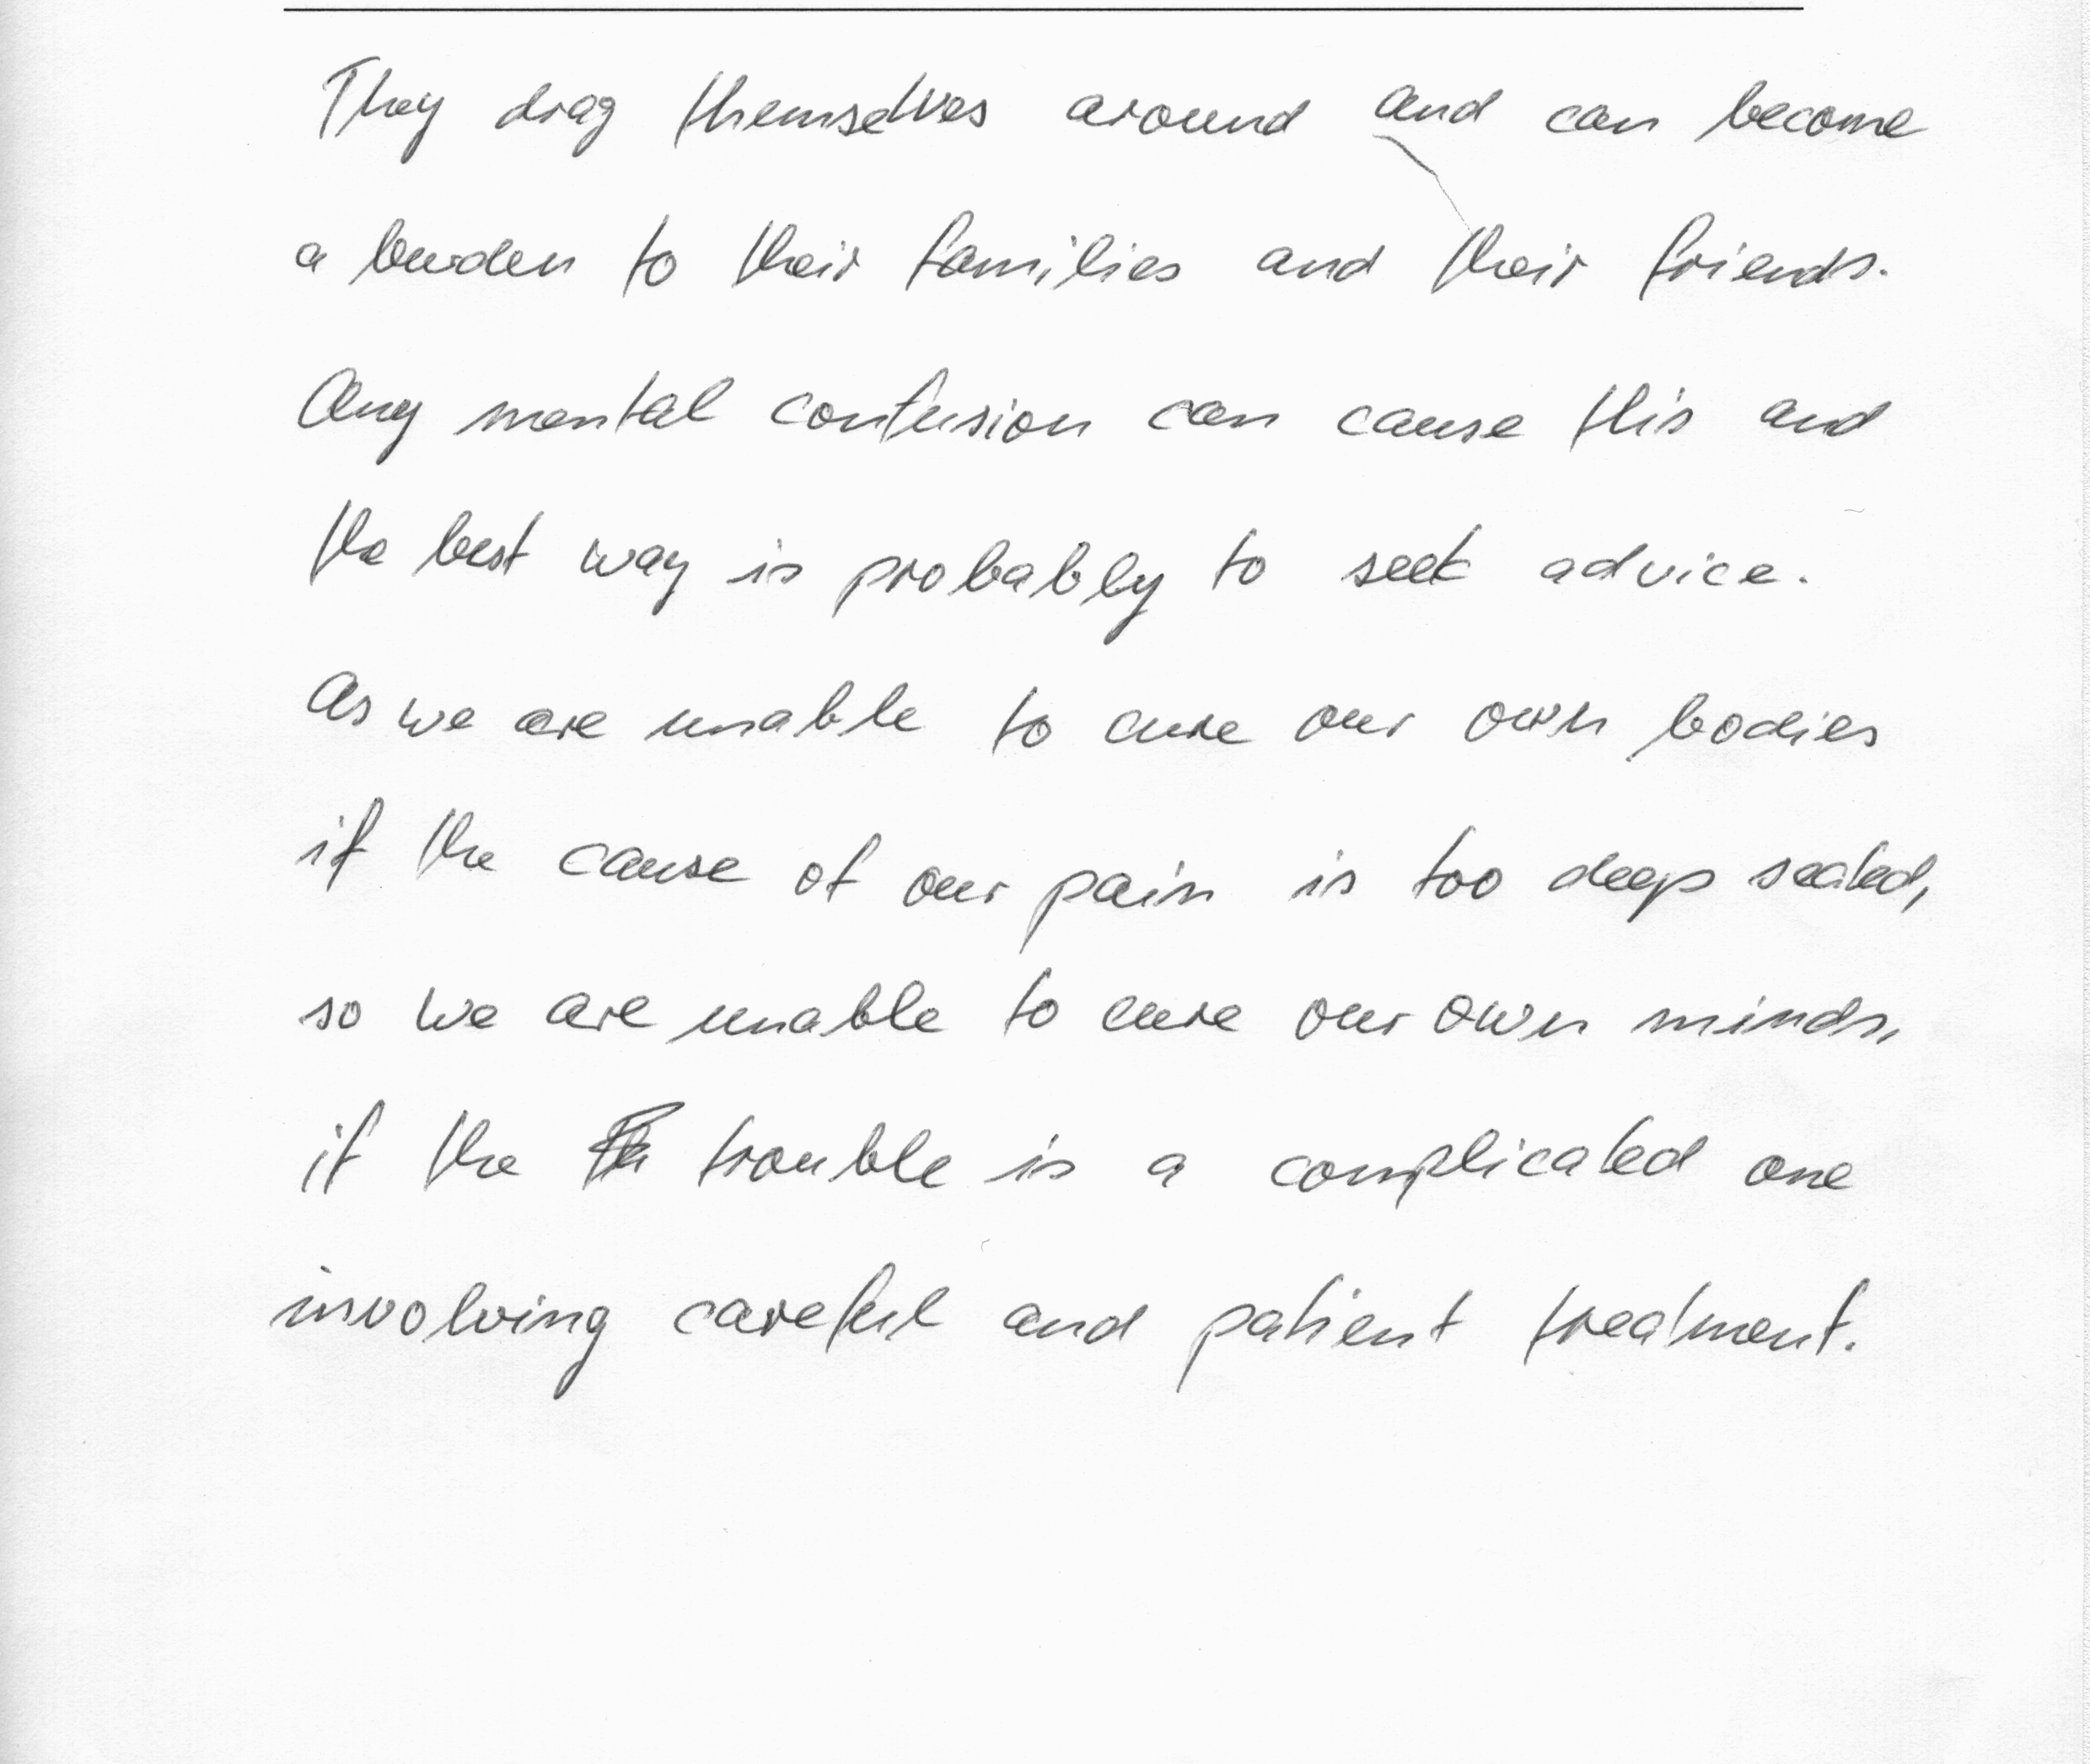 They drag themselves around and can become
a burden to their families and their friends.
Any mental confusion can cause this and
the best way is probably to seek advice.
As we are unable to cure our own bodies
if the cause of our pain is too deep seated,
so we are unable to cure our own minds,
if the trouble is a complicated one
involving careful and patient treatment.